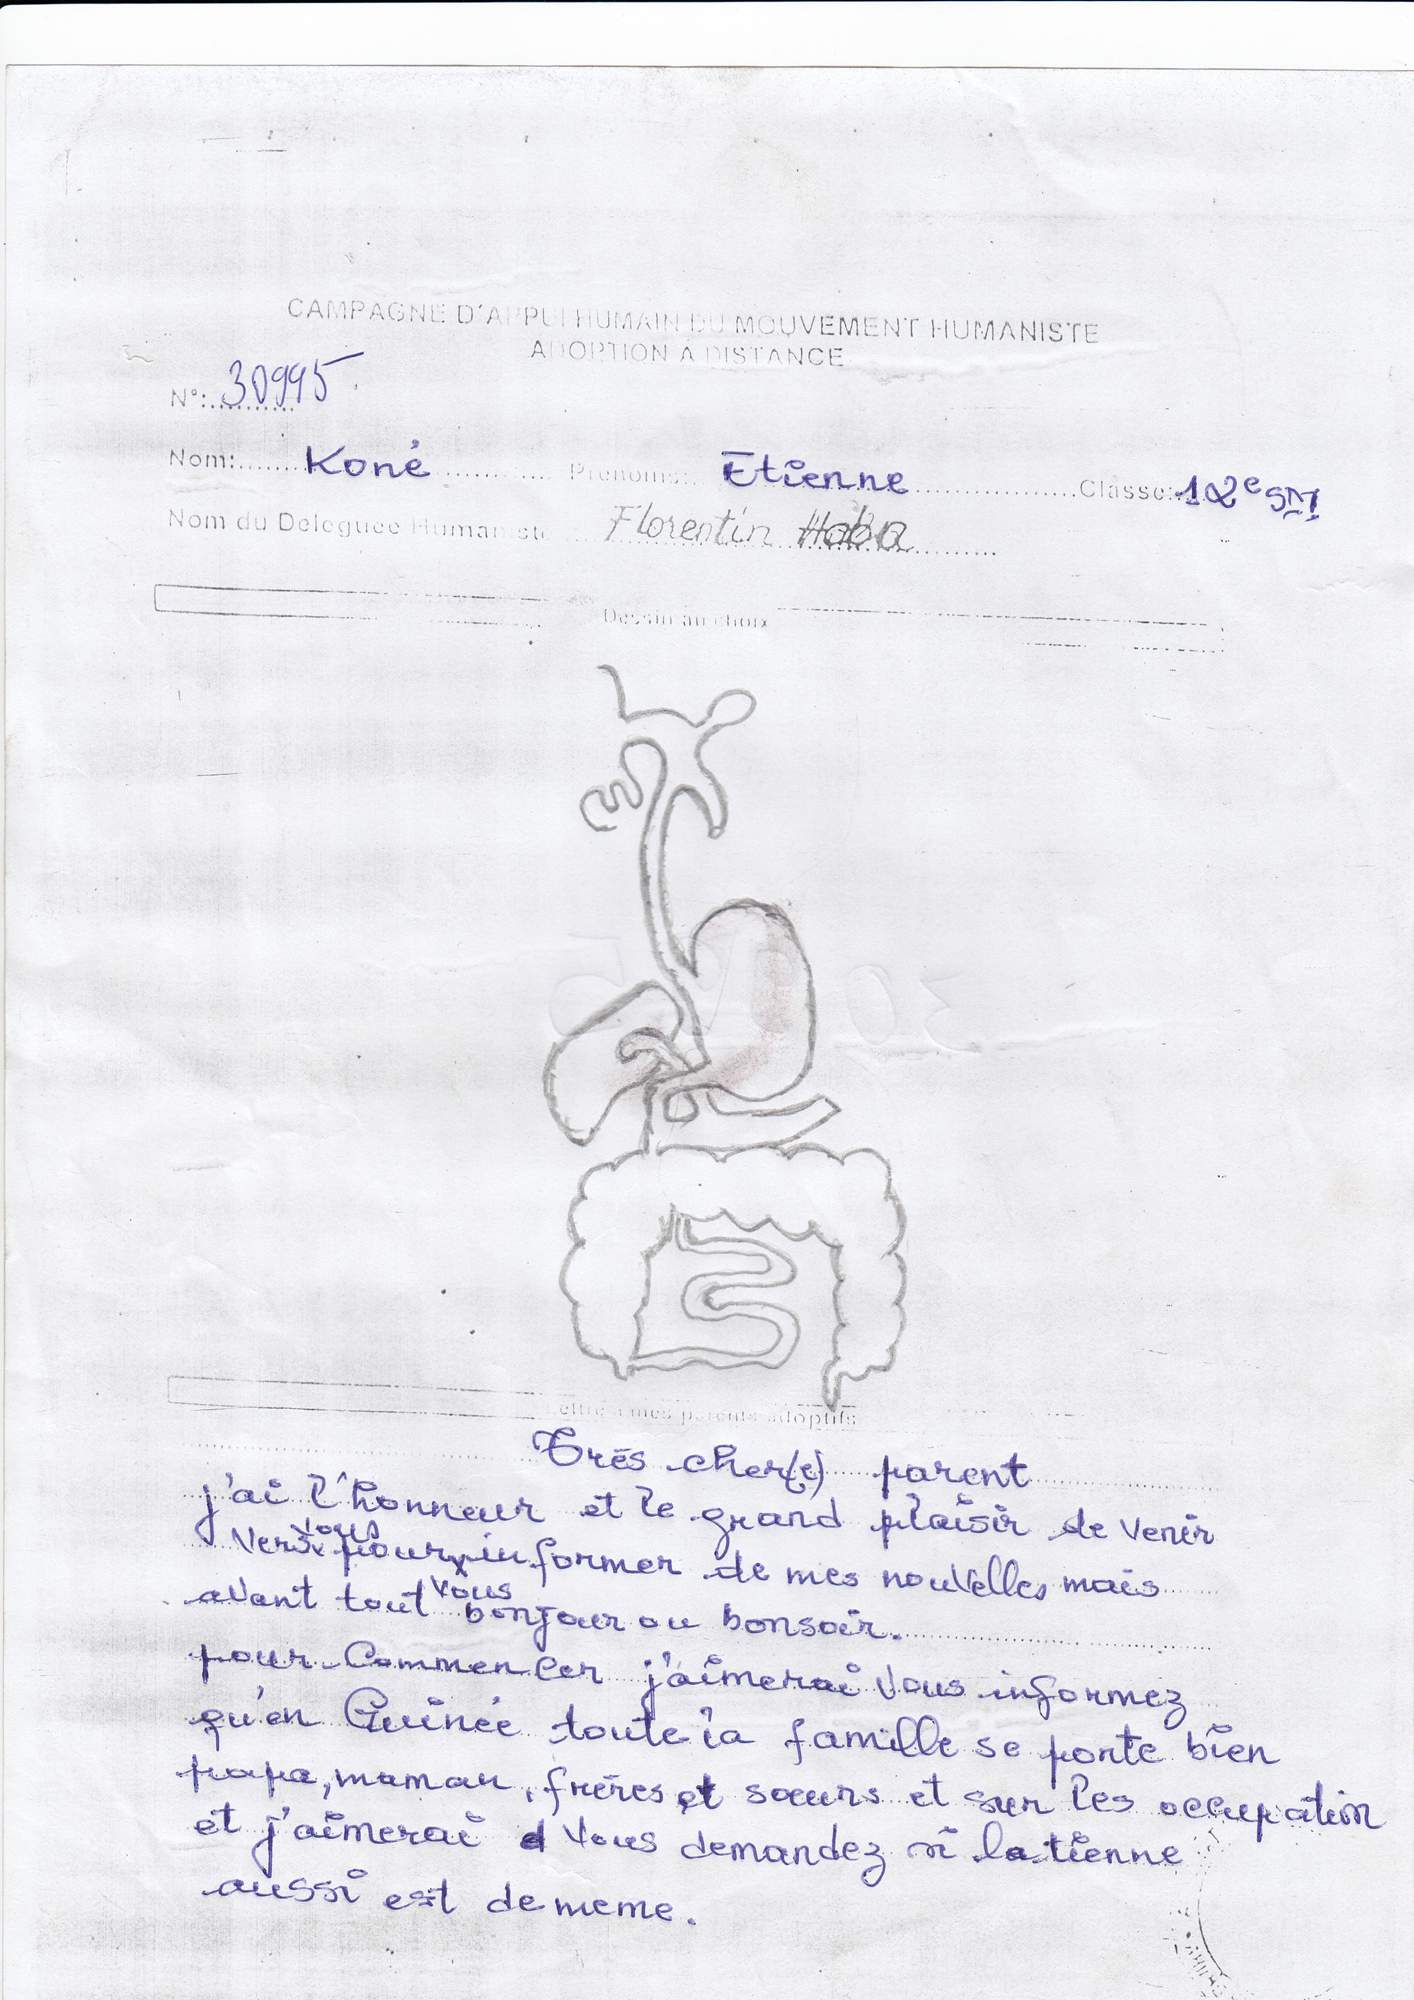 CAMPAGNE D'APPUI HUMAIN DU MOUVEMENT HUMANISTE
ADOPTION A DISTANCE
N°: 30995
Nom: Koné Prénoms: Etienne Classe: 12e SM
Nom du Délégué Humaniste Florentin Haba
Dessin au choix
Lettre à mes parents adoptifs
Très cher(e) parent
j'ai l'honneur et le grand plaisir de venir
vers vous pour informer de mes nouvelles mais
avant tout vous bonjour ou bonsoir.
pour commencer j'aimerai vous informez
qu'en Guinée toute la famille se porte bien
papa, maman, frères et sœurs et sur les occupation
et j'aimerai d vous demandez si la tienne
aussi est de meme.